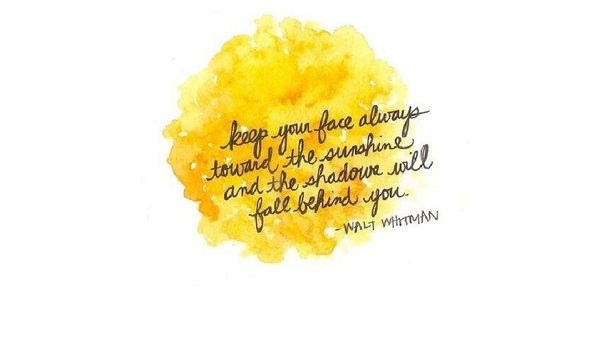 keep your face always
toward the sunshine
and the shadows will
fall behind you.
-WALT WHITMAN